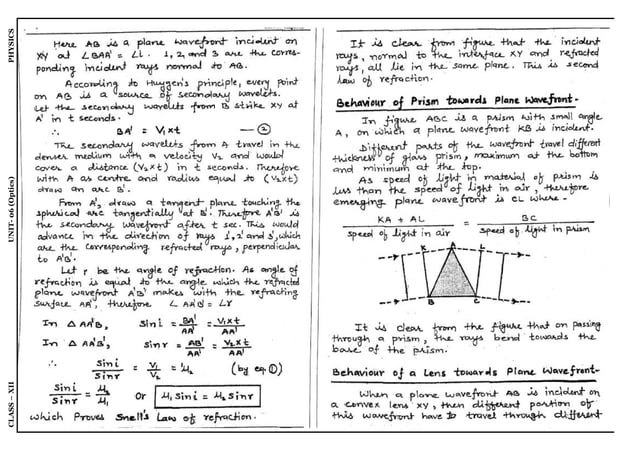 PHYSICS
UNIT- 06 (Optics)
CLASS – XII
Here AB is a plane wavefront incident on
XY at ∠BAA' = ∠i. 1, 2, and 3 are the corres-
ponding incident rays normal to AB.
According to Huygen's principle, every point
on AB is a source of secondary wavelets.
Let the secondary wavelets from B strike XY at
A' in t seconds.
∴ BA' = V₁xt —②
The secondary wavelets from A travel in the
denser medium with a velocity V₂ and would
cover a distance (V₂xt) in t seconds. Therefore
with A as centre and radius equal to (V₂xt)
draw an arc B'.
From A', draw a tangent plane touching the
spherical arc tangentially at B'. Therefore A'B' is
the secondary wavefront after t sec. This would
advance in the direction of rays 1', 2' and 3', which
are the corresponding refracted rays, perpendicular
to A'B'.
Let r be the angle of refraction. As angle of
refraction is equal to the angle which the refracted
plane wavefront A'B' makes with the refracting
surface AA', therefore ∠AA'B' = ∠r
In △AA'B, sin i = BA'/AA' = V₁xt/AA'
In △AA'B', sin r = AB'/AA' = V₂xt/AA'
∴ sin i/sin r = V₁/V₂ = μ (by eq ①)
sin i/sin r = μ₂/μ₁ or μ₁ sin i = μ₂ sin r
which Proves Snell's Law of refraction.
It is clear from figure that the incident
rays, normal to the interface XY and refracted
rays, all lie in the same plane. This is second
law of refraction.
Behaviour of Prism towards Plane Wavefront-
In figure ABC is a prism with small angle
A, on which a plane wavefront KB is incident.
Different parts of the wavefront travel different
thickness of glass prism, maximum at the bottom
and minimum at the top.
As speed of light in material of prism is
less than the speed of light in air, therefore
emerging plane wavefront is CL where-
KA + AL/speed of light in air = BC/speed of light in prism
K A L
B C
It is clear from the figure that on passing
through a prism, the rays bend towards the
base of the prism.
Behaviour of a Lens towards Plane Wavefront-
When a plane wavefront AB is incident on
a convex lens XY, then different portion of
this wavefront have to travel through different